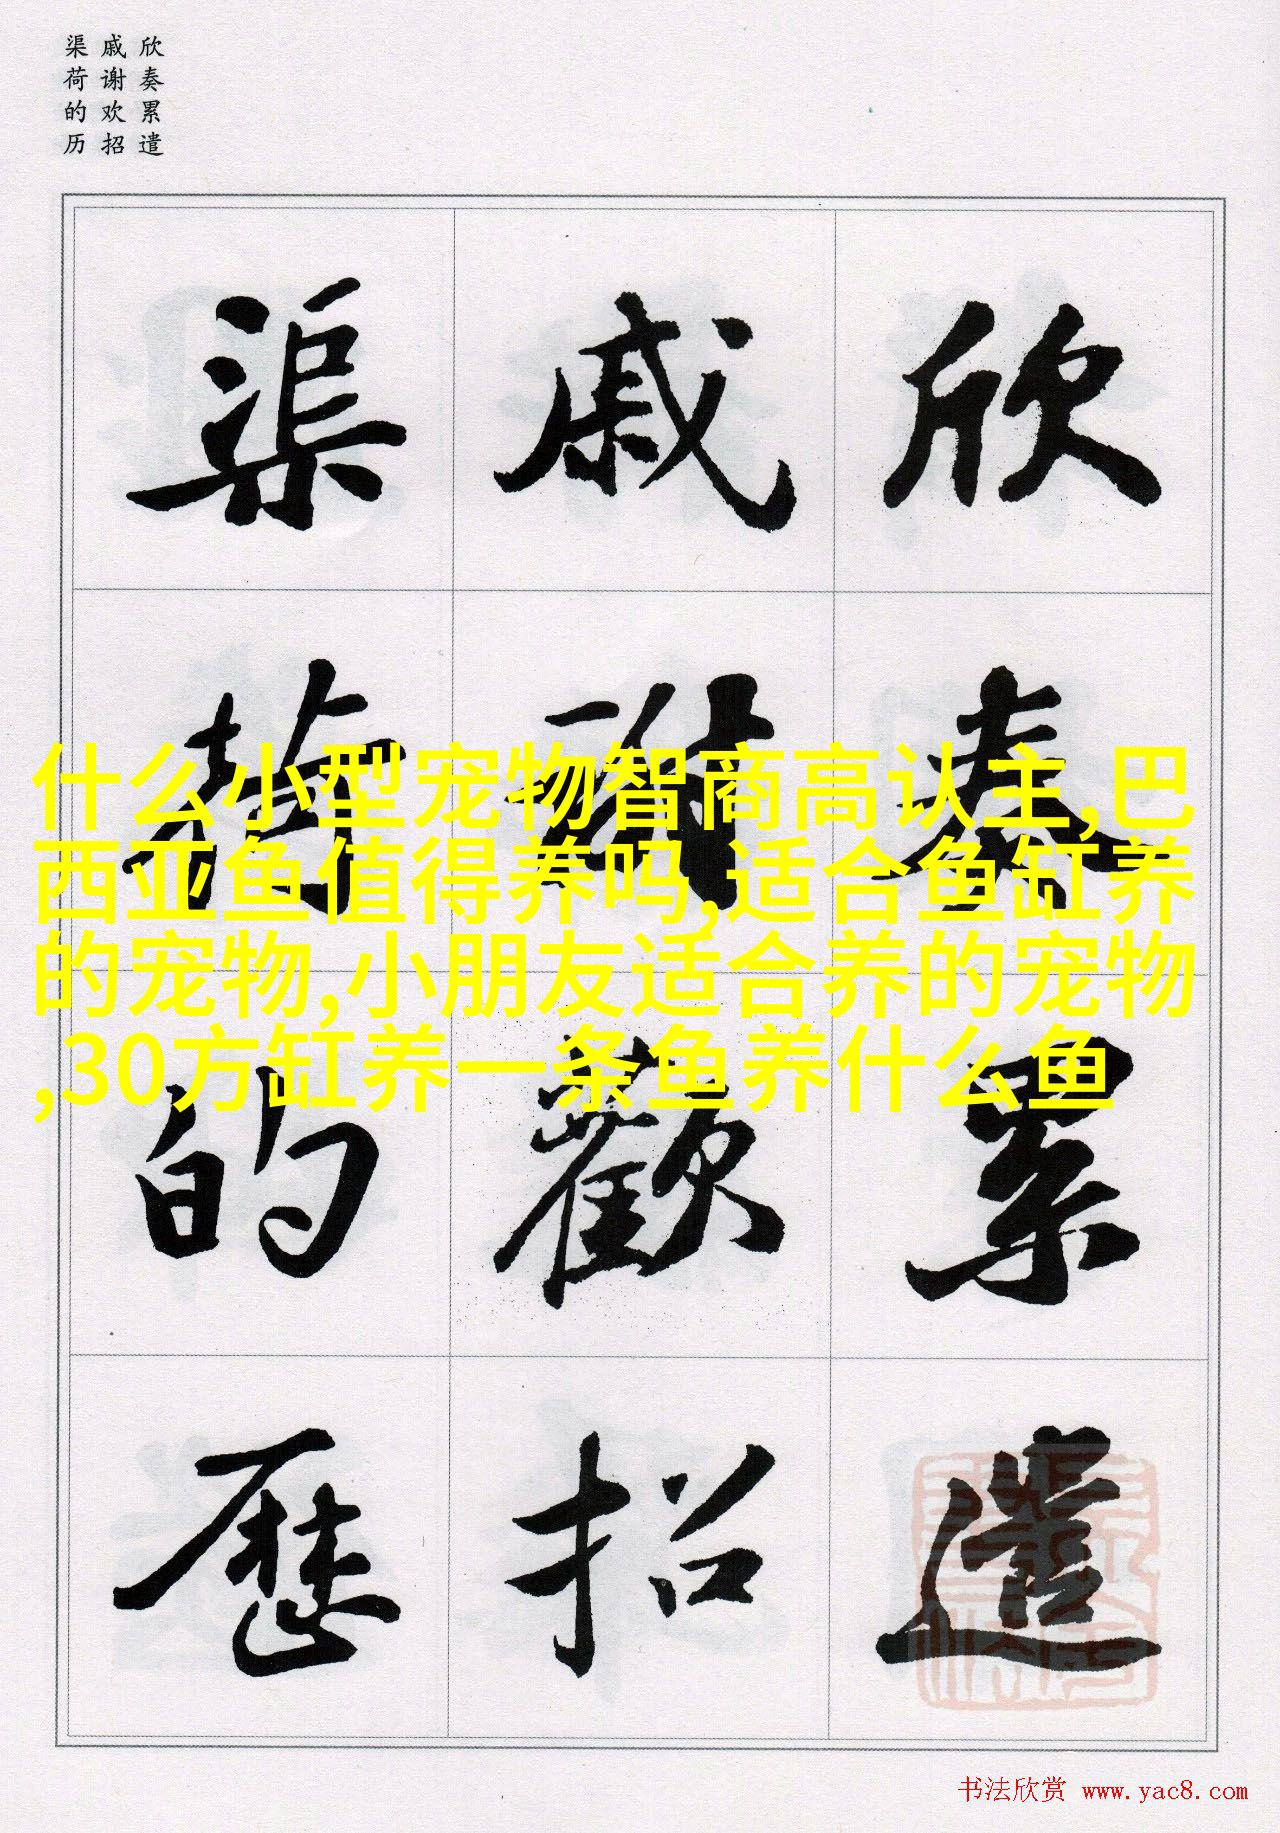 欣奏累遣
戚谢欢招
渠荷的历
欣奏累遣
戚謝歡招
渠荷的歷
什么小型宠物智商高认主,巴
西亚鱼值得养吗,适合鱼缸养
的宠物,小朋友适合养的宠物
,30方缸养一条鱼养什么鱼
书法欣赏 www.yac8.com